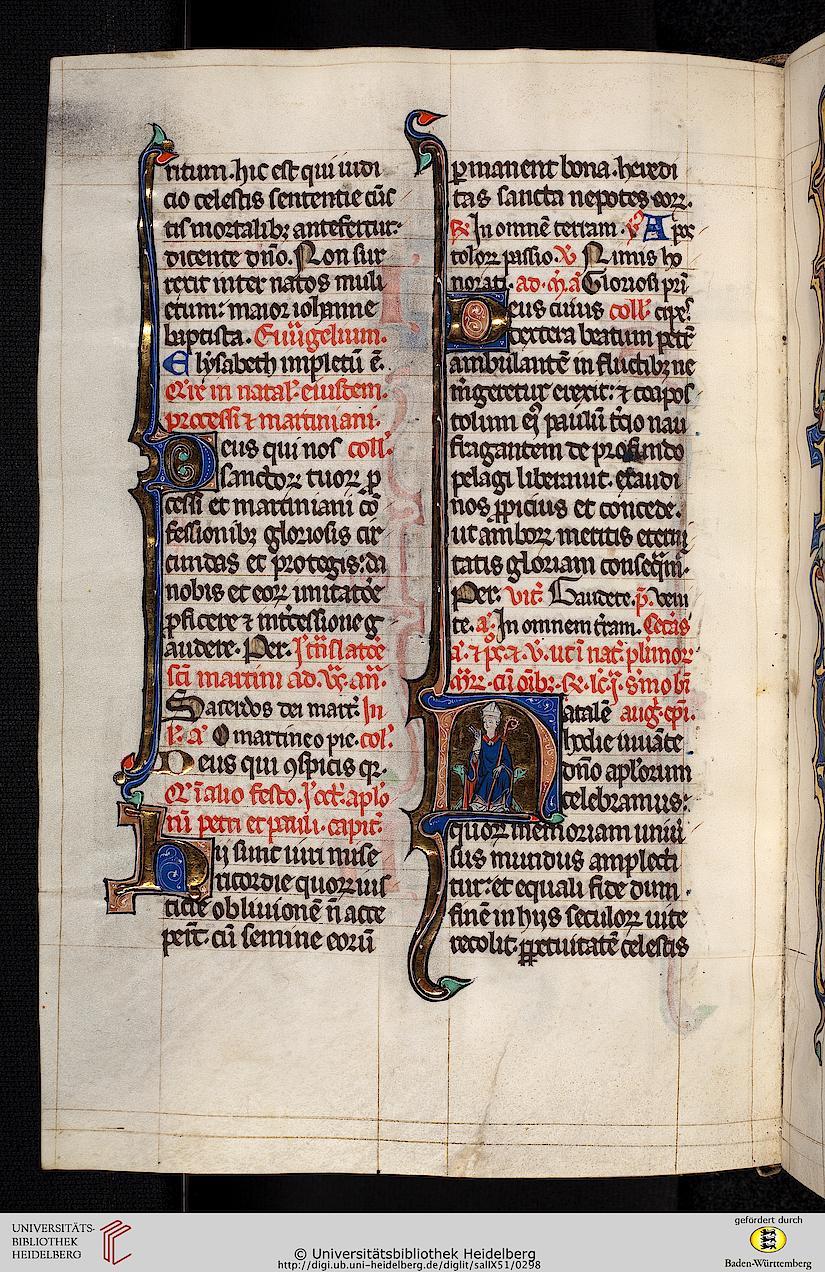 ritum. hic est qui iudi
cio celestis sententie cūc
tis mortalibꝫ antefertur:
dicente dn̄o. Non sur
rexit inter natos muli
erum: maior iohanne
baptista. Euu̅gelium.
Elysabeth impletū ē.
in natal̕ eiusdem.
processi ⁊ martiniani.
Deus qui nos coll̕.
sanctoꝝ tuoꝝ ꝑ
cessi et martiniani cō
fessionibꝫ gloriosis cir
cundas et protegis: da
nobis et eoꝝ imitatōe
ꝓficere ⁊ int̕cessione g
audere. Per. Ītn̄slatōe
sc̄i martini ad
Sacerdos dei mart̕. In
O martine o pie. col̕.
Deus qui ꝯspicis qꝛ.
alio festo. aplo
petri et pauli. capit̕.
Hij sunt uiri mise
ricordie quoꝝ ius
ticie obliuionē n̄ acce
per̄t. cū semine eorū
ꝑmanent bona. heredi
tas sancta nepotes eoꝝ.
In omnē terram. A pꝛe
toloꝝ passio. Nimis ho
norati. ad. Gloriosi pri
Deus cuius coll̕. cipes
dextera beatum petꝝ
ambulantē in fluctibꝫ ne
m̄geretur erexit: ⁊ coapos
tolum eꝰ paulū t̕cio nau
fragantem de profundo
pelagi liberauit. exaudi
nos ꝓpicius et concede.
ut amboꝝ meritis eterni
tatis gloriam conseqm̄.
Per. Gaudete. ueni
te. In omnem t̕ram. Cetͣa
ut ī nat̕ plimoꝝ
Natalē aug̕. ep̄i.
hodie iuuāte
dn̄o apl̕orum
celebramus:
quoꝝ memoriam uniū
sus mundus amplecti
tur: et equali fide dum
finē in hijs seculoꝝ uite
recolit. ꝑpetuitatē celestis
UNIVERSITÄTS-
BIBLIOTHEK
HEIDELBERG
© Universitätsbibliothek Heidelberg
http://digi.ub.uni-heidelberg.de/diglit/salIX51/0298
gefördert durch
Baden-Württemberg